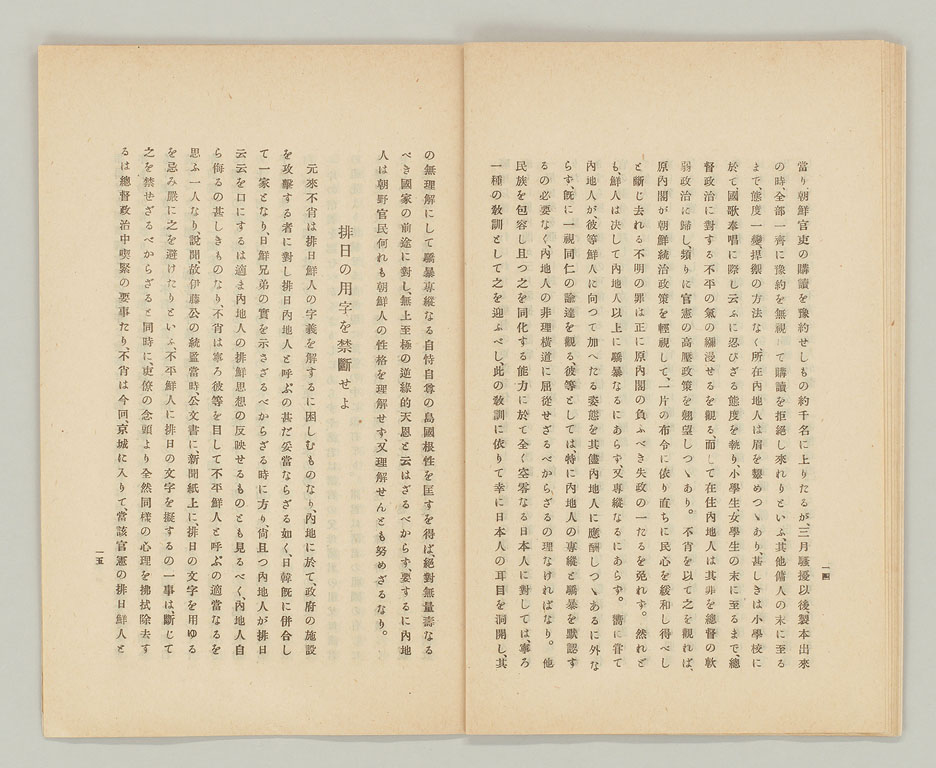 一四
當り、朝鮮官吏の購讀を豫約せしもの約千名に上りたるが、三月騷擾以後、製本出來
の時、全部一齊に豫約を無視して購讀を拒絕し來れりといふ、其他傭人の末に至る
まで、態度一變、操觀の方法なく、所在內地人は眉を顰めつゝあり、甚しきは小學校に
於て國歌奉唱に際し云ふに忍びざる態度を執り、小學生、女學生の末に至るまで、總
督政治に對する不平の氣の瀰漫せるを觀る、而して在住內地人は其罪を總督の軟
弱政治に歸し、頻りに官憲の高壓政策を翹望しつゝあり。不肖を以て之を觀れば、
原內閣が朝鮮統治政策を輕視して、一片の布令に依り直ちに民心を緩和し得べし
と斷じ去れる不明の罪は正に原內閣の負ふべき失政の一たるを免れず。然れど
も、鮮人は決して內地人以上に驕暴なるにあらず、又專縱なるにあらず。濟に甞て
內地人が、彼等鮮人に向つて加へたる姿態を其儘內地人に應酬しつゝあるに外な
らず、既に一視同仁の諭達を觀る、彼等としては、特に內地人の專縱と驕暴を默認す
るの必要なく、內地人の非理橫道に屈從せざるべからざるの理なければなり。他
民族を包容し且つ之を同化する能力に於て全く空零なる日本人に對しては、寧ろ
一種の敎訓として之を迎ふべし、此の敎訓に依りて幸に日本人の耳目を洞開し、其
の無理解にして驕暴專縱なる自恃自尊の島國根性を匡すを得ば、絕對無量壽なる
べき國家の前途に對し、無上至極の逆緣的天恩と云はざるべからず、要するに內地
人は朝野官民何れも朝鮮人の性格を理解せず、又理解せんとも努めざるなり。
排日の用字を禁斷せよ
元來不肖は排日鮮人の字義を解するに困しむものなり、內地に於て、政府の施設
を攻擊する者に對し排日內地人と呼ぶの甚だ妥當ならざる如く、日韓既に倂合し
て一家となり、日鮮兄弟の實を示さざるべからざる時に方り、尙且つ內地人が排日
云云を口にするは適ま內地人の排鮮思想の反映せるものとも見るべく、內地人自
ら侮るの甚しきものなり、不肖は寧ろ彼等を目して不平鮮人と呼ぶの適當なるを
思ふ一人なり、說聞、故伊藤公の統監當時、公文書に、新聞紙上に、排日の文字を用ゆる
を忌み嚴に之を避けたりといふ、不平鮮人に排日の文字を擬するの一事は、斷じて
之を禁せざるべからざると同時に、吏僚の念頭より全然同樣の心理を拂拭除去す
るは總督政治中喫緊の要事たり、不肖は今回、京城に入りて、當該官憲の排日鮮人と
一五